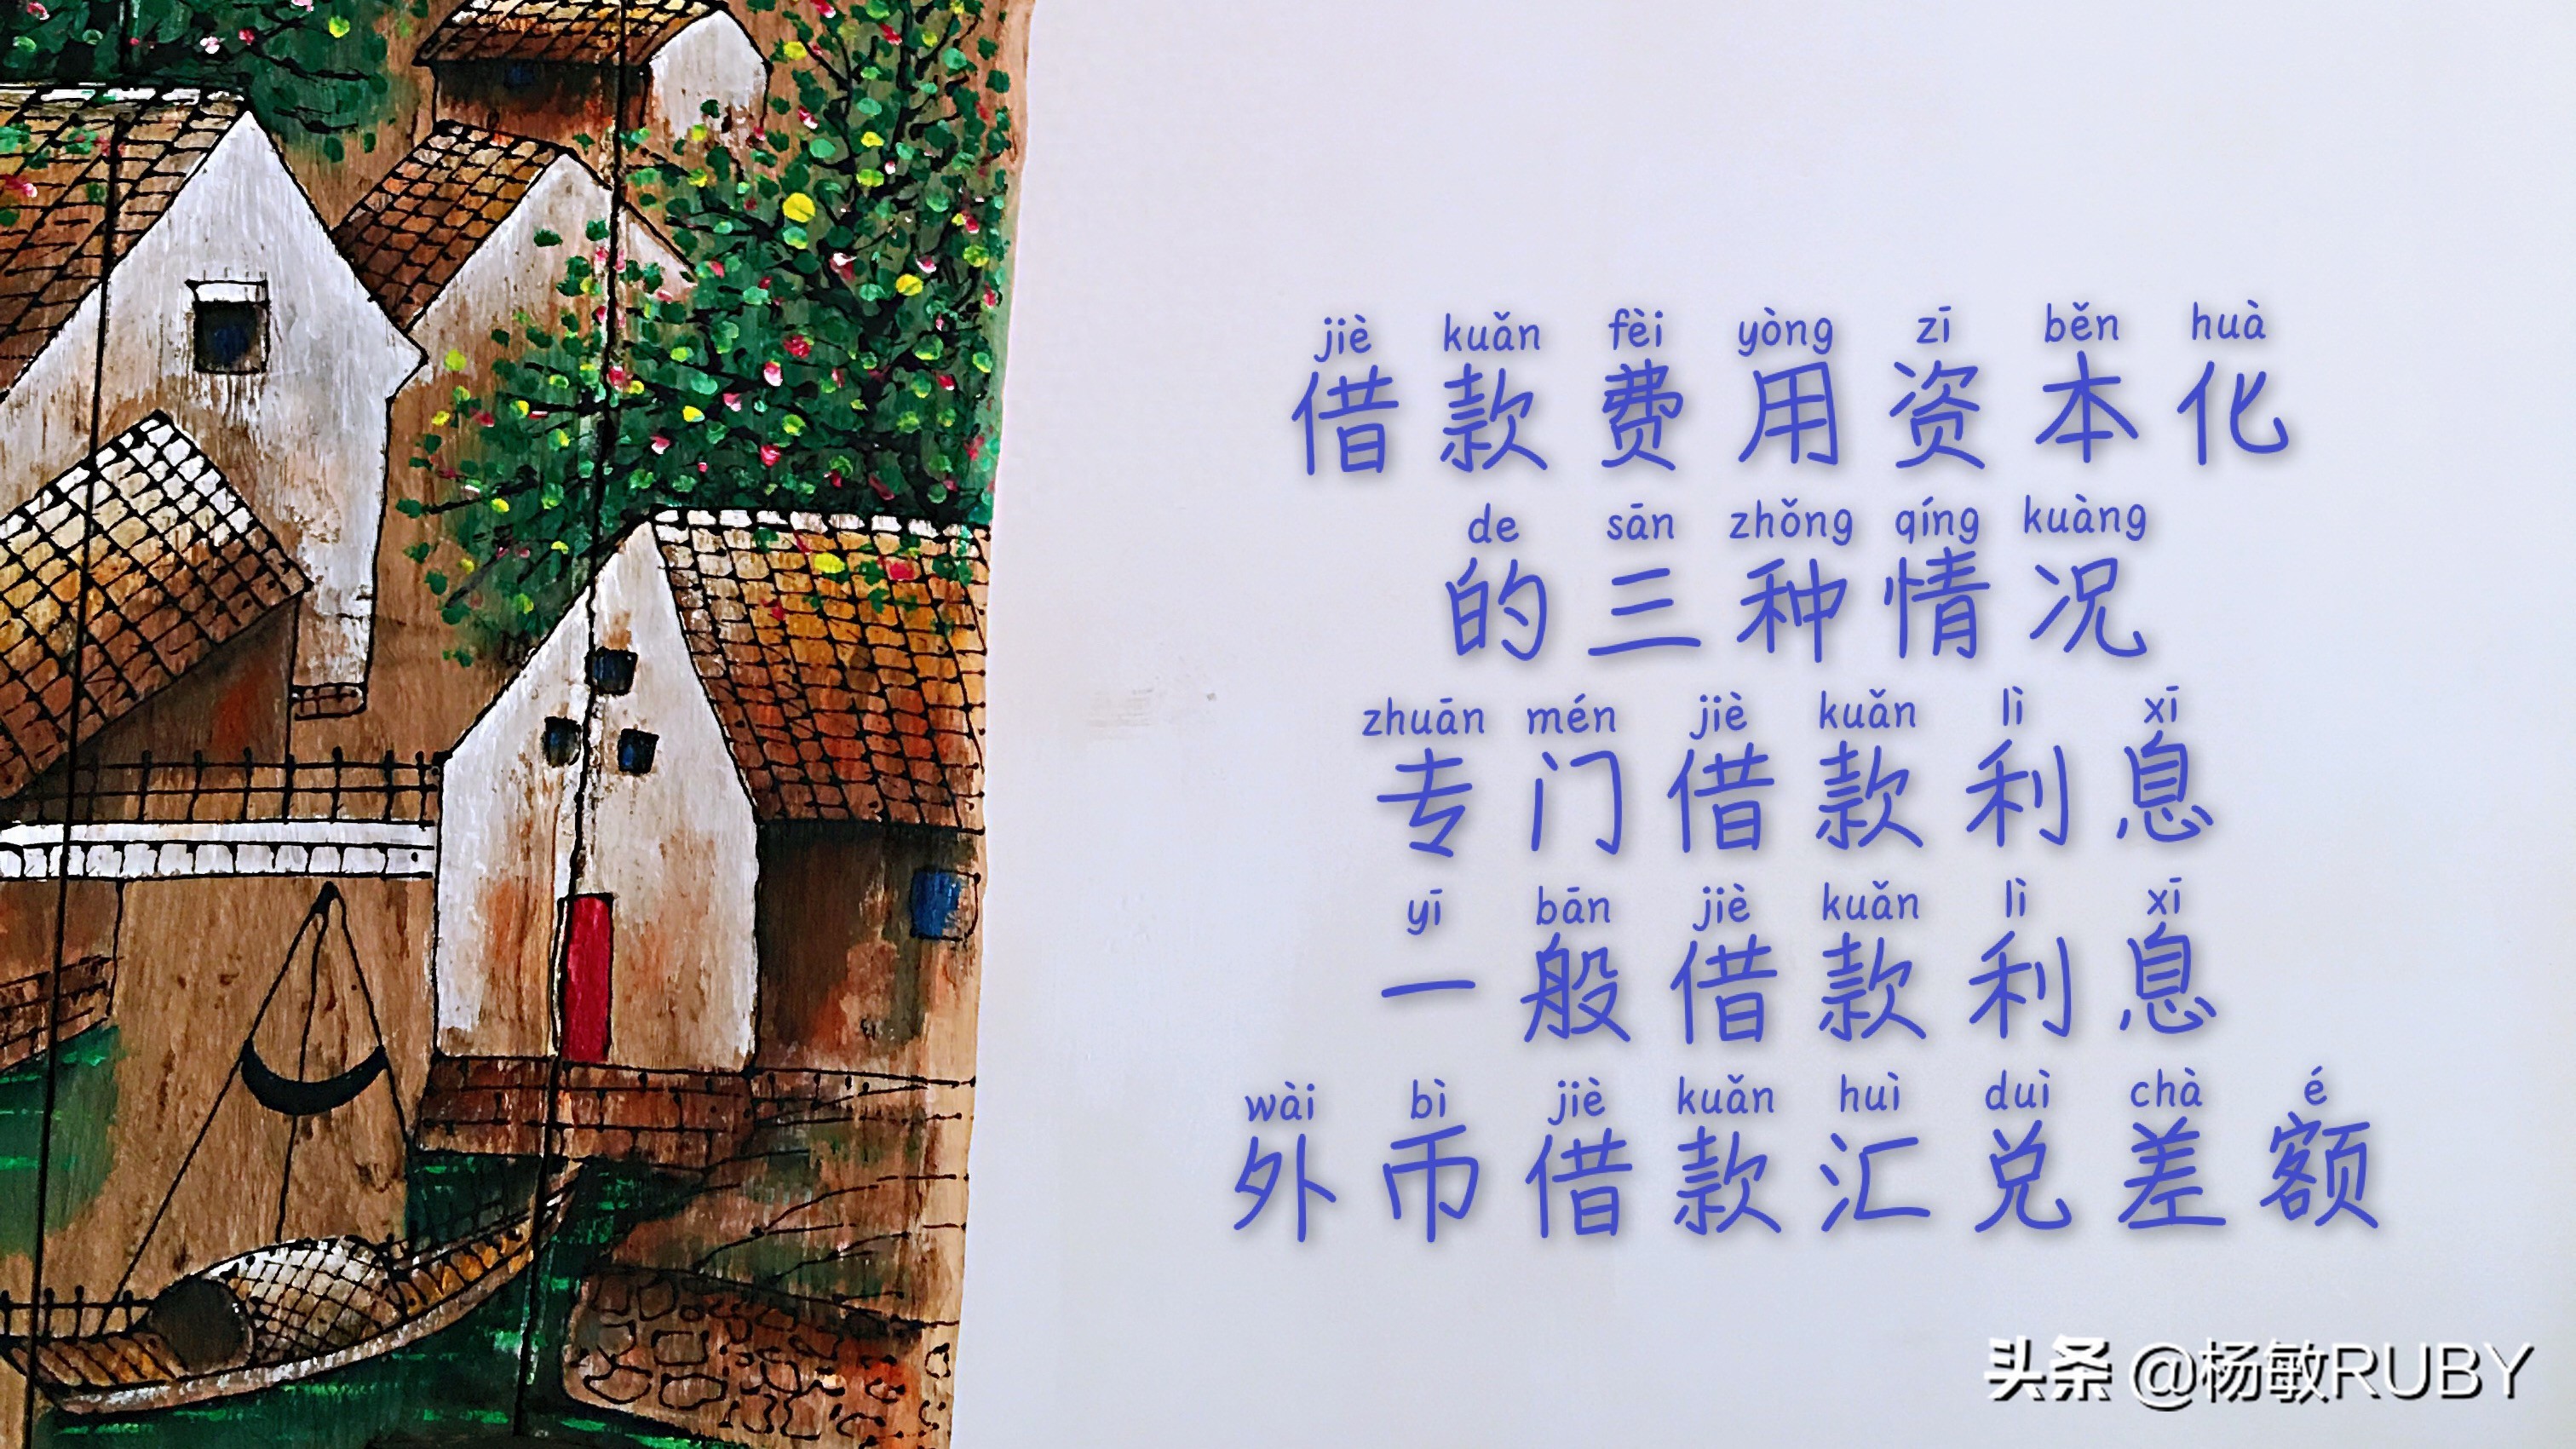 jiè kuǎn fèi yòng zī běn huà
借款费用资本化
de sān zhǒng qíng kuàng
的三种情况
zhuān mén jiè kuǎn lì xī
专门借款利息
yī bān jiè kuǎn lì xī
一般借款利息
wài bì jiè kuǎn huì duì chà é
外币借款汇兑差额
头条 @杨敏RUBY